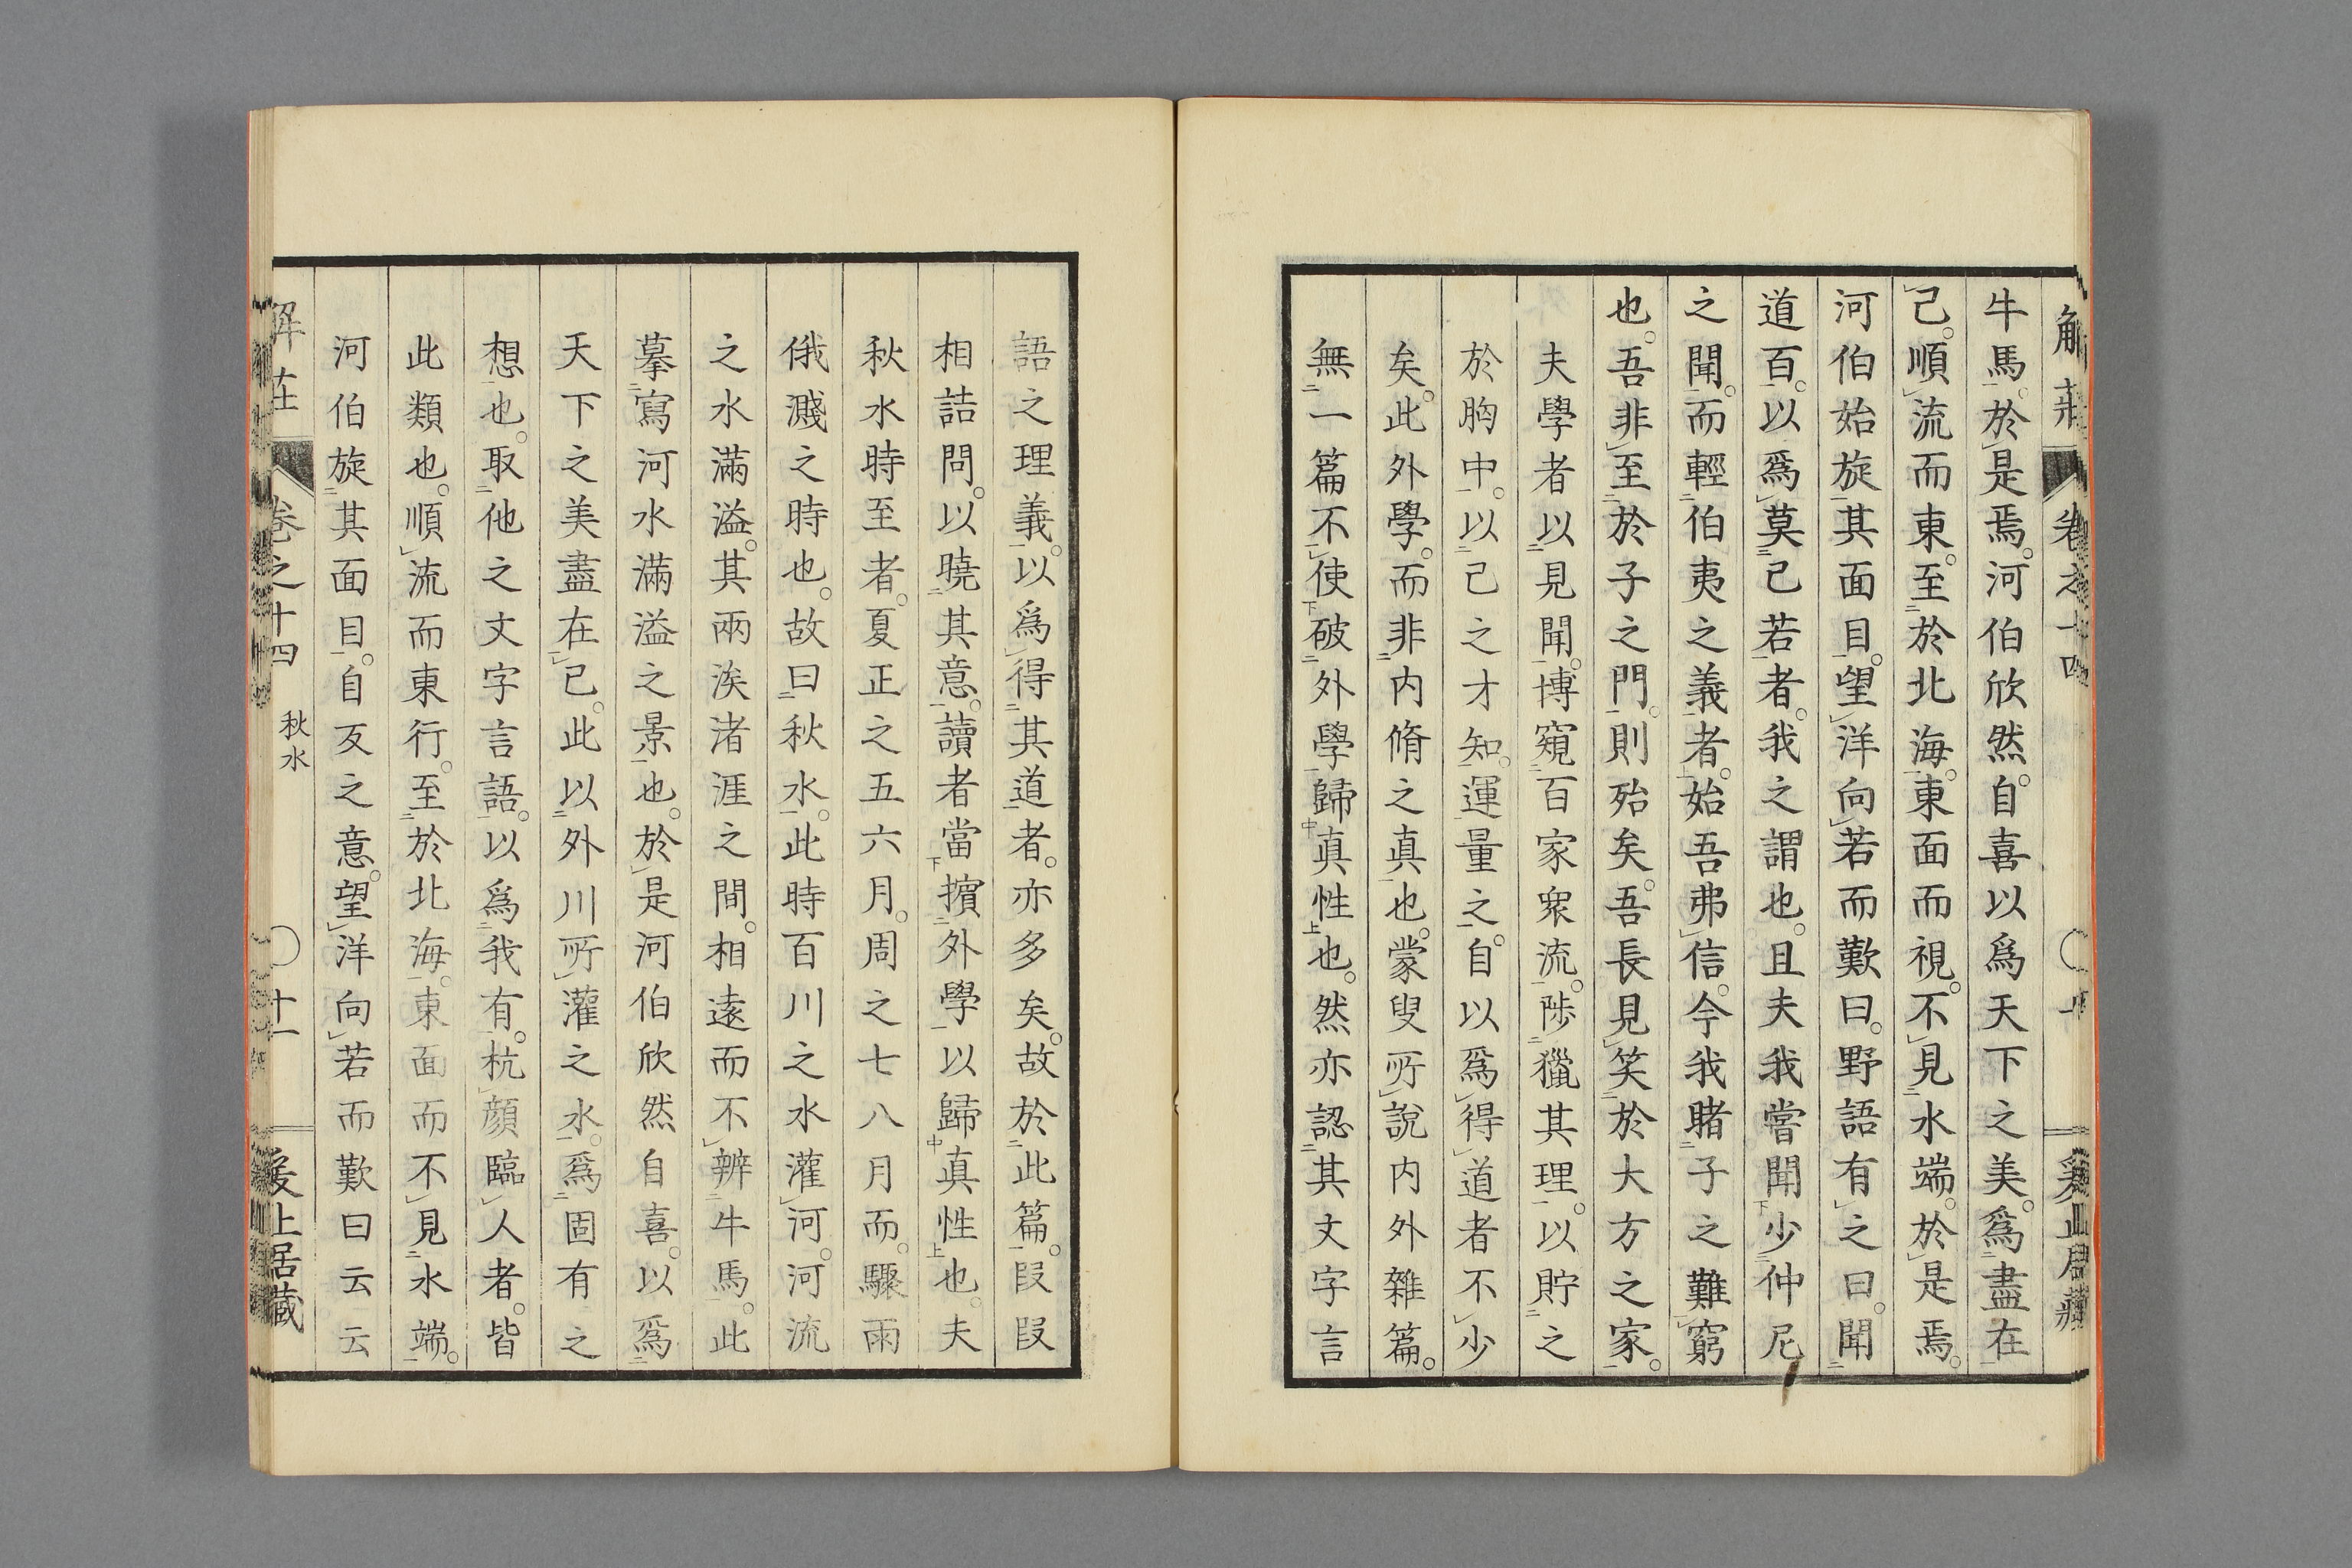 牛馬。於是焉。河伯欣然。自喜以爲天下之美。爲盡在
己。順流而東。至於北海。東面而視。不見水端。於是焉。
河伯始旋其面目。望洋向若而歎曰。野語有之曰。聞
道百。以爲莫己若者。我之謂也。且夫我嘗聞少仲尼
之聞。而輕伯夷之義者。始吾弗信。今我睹子之難窮
也。吾非至於子之門。則殆矣。吾長見笑於大方之家。
夫學者以見聞。博窺百家衆流。陟獵其理。以貯之
於胸中。以己之才知。運量之。自以爲得道者不少
矣。此外學。而非内脩之真也。蒙叟所說内外雜篇。
無一篇不使破外學歸真性也。然亦認其文字言
語之理義。以爲得其道者。亦多矣。故於此篇。段段
相詰問。以曉其意。讀者當擯外學以歸真性也。夫
秋水時至者。夏正之五六月。周之七八月而。驟雨
俄濺之時也。故曰秋水。此時百川之水灌河。河流
之水滿溢。其兩涘渚涯之間。相遠而不辨牛馬。此
摹寫河水滿溢之景也。於是河伯欣然自喜。以爲
天下之美盡在己。此以外川所灌之水。爲固有之
想也。取他之文字言語。以爲我有。抗顔臨人者。皆
此類也。順流而東行。至於北海。東面而不見水端。
河伯旋其面目。自反之意。望洋向若而歎曰云云
解莊 卷之十四 秋水 〇十一 爰止居藏